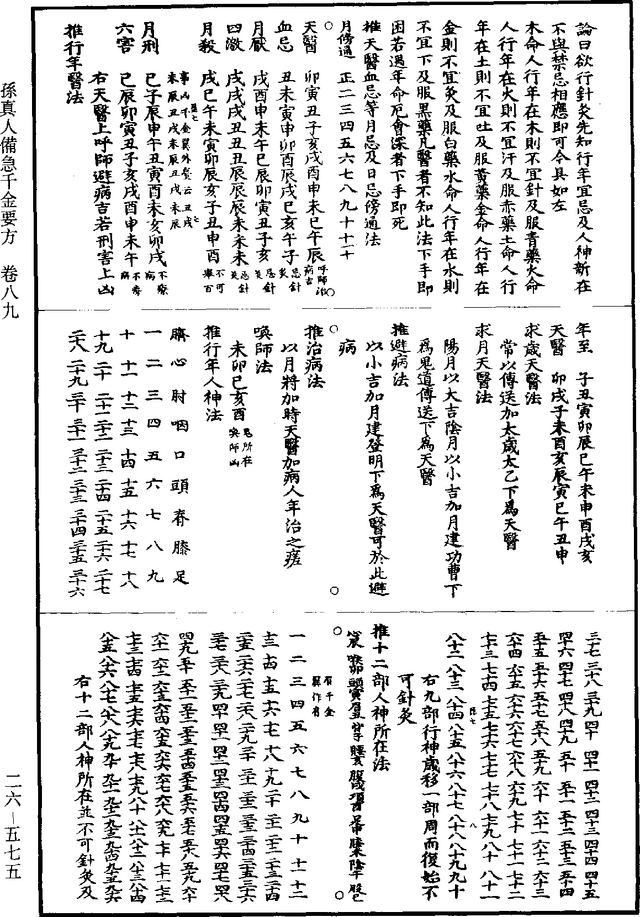 論曰欲行針灸先知行年宜忌及人神所在
不與禁忌相應即可今具如左
木命人行年在木則不宜針及服青藥火命
人行年在火則不宜汗及服赤藥土命人行
年在土則不宜吐及服黃藥金命人行年在
金則不宜灸及服白藥水命人行年在水則
不宜下及服黑藥凡醫者不知此法下手即
困若遇年命厄會深者下手即死
推天醫血忌等月忌及日忌傍通法
月傍通 正二三四五六七八九十十一十二
天醫 卯寅丑子亥戌酉申未巳午辰 呼師治病吉
血忌 丑未寅申卯酉辰戌巳亥午子 忌針灸
月厭 戌酉申未午巳辰卯寅丑子亥 忌針灸
四激 戌戌戌丑丑丑辰辰辰未未未 忌針灸
月殺 戌巳午未寅卯辰亥子丑申酉 不可舉百
事凶千金翼外臺云丑戌
未辰丑戌未辰丑戌未辰
月刑 巳子辰申午丑寅酉未亥卯戌 不療病
六害 巳辰卯寅丑子亥戌酉申未午 不療病
右天醫上呼師避病吉若刑害上凶
推行年醫法
年至 子丑寅卯辰巳午未申酉戌亥
天醫 卯戌子未酉亥辰寅巳午丑申
求歲天醫法
常以傳送加太歲太乙下爲天醫
求月天醫法
陽月以大吉陰月以小吉加月建功曹下
爲鬼道傳送下爲天醫
推避病法
以小吉加月建登明下爲天醫可於此避
病
推治病法
以月將加時天醫加病人年治之瘥
喚師法
未卯巳亥酉 鬼所在喚師凶
推行年人神法
臍 心 肘 咽 口 頭 脊 膝 足
一 二 三 四 五 六 七 八 九
十 十一 十二 十三 十四 十五 十六 十七 十八
十九 二十 二十一 二十二 二十三 二十四 二十五 二十六 二十七
二十八 二十九 三十 三十一 三十二 三十三 三十四 三十五 三十六
三十七 三十八 三十九 四十 四十一 四十二 四十三 四十四 四十五
四十六 四十七 四十八 四十九 五十 五十一 五十二 五十三 五十四
五十五 五十六 五十七 五十八 五十九 六十 六十一 六十二 六十三
六十四 六十五 六十六 六十七 六十八 六十九 七十 七十一 七十二
七十三 七十四 七十五 七十六 七十七 七十八 七十九 八十 八十一
八十二 八十三 八十四 八十五 八十六 八十七 八十八 八十九 九十
右九部行神歲移一部周而復始不
可針灸
推十二部人神所在法
心辰 喉卯 頭寅 肩丑 背子 腰亥 腹戌 項酉 足申 膝未 陰午 股巳
一 二 三 四 五 六 七 八 九 十 十一 十二
十三 十四 十五 十六 十七 十八 十九 二十 二十一 二十二 二十三 二十四
二十五 二十六 二十七 二十八 二十九 三十 三十一 三十二 三十三 三十四 三十五 三十六
三十七 三十八 三十九 四十 四十一 四十二 四十三 四十四 四十五 四十六 四十七 四十八
四十九 五十 五十一 五十二 五十三 五十四 五十五 五十六 五十七 五十八 五十九 六十
六十一 六十二 六十三 六十四 六十五 六十六 六十七 六十八 六十九 七十 七十一 七十二
七十三 七十四 七十五 七十六 七十七 七十八 七十九 八十 八十一 八十二 八十三 八十四
八十五 八十六 八十七 八十八 八十九 九十 九十一 九十二 九十三 九十四 九十五 九十六
右十二部人神所在並不可針灸及
孫真人備急千金要方 卷八九
二六—五七五